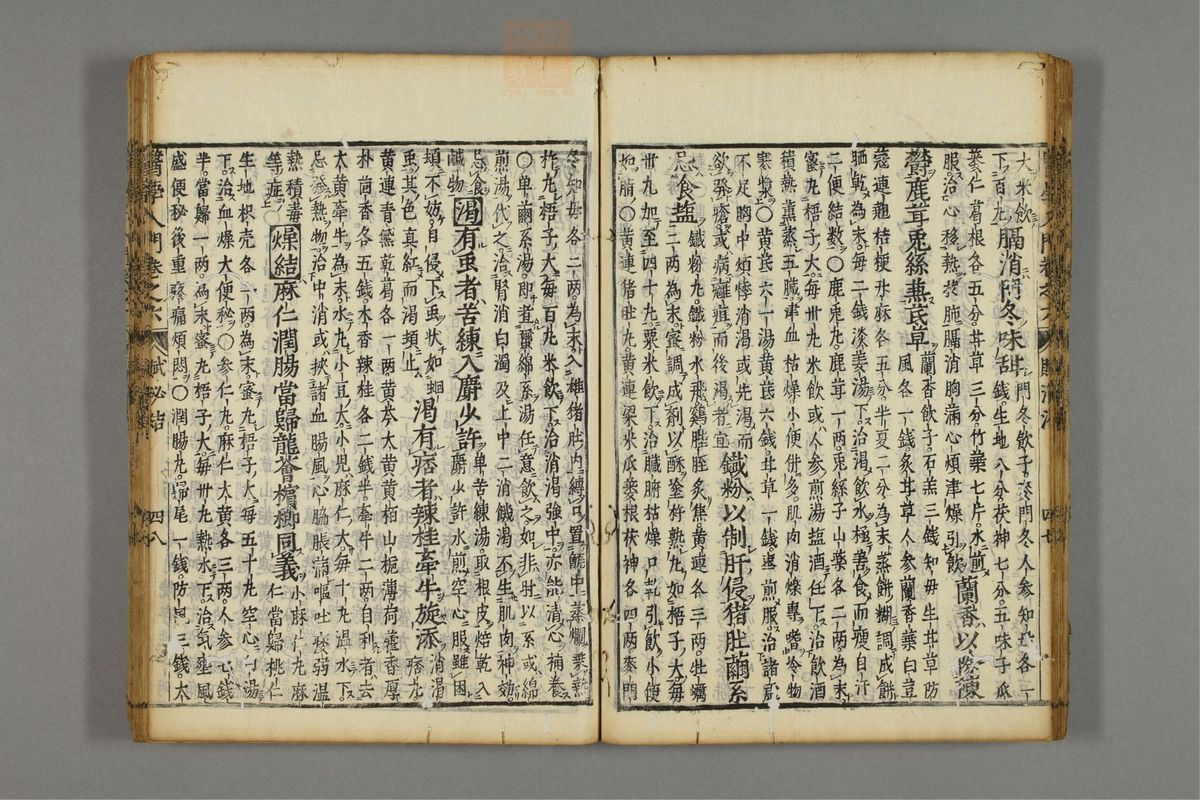 大米飲下
下百丸膈消門冬味甜門冬飲子麥門冬人參知母各一
錢生地八分茯神七分五味子瓜
蔞仁葛根各五分甘草三分竹葉七片水煎
服治心移熱於肺膈消胸滿心煩津燥引飲蘭香以除陳
欝鹿茸兎絲燕芪草蘭香飲子石羔三錢知母生甘草防
風各一錢炙甘草人參蘭香葉白豆
蔻連翹桔梗升麻各五分半夏二分為末蒸餅糊調成餅
晒乾為末每二錢淡姜湯下治渴飲水極善食而瘦自汗
二便結數〇鹿兎丸鹿茸一兩兎絲子山藥各二兩為末
蜜丸梧子大每卅丸米飲或人參煎湯盐酒任下治飲酒
積熱熏蒸五臟津血枯燥小便併多肌肉消燥專嗜冷物
寒漿〇黃芪六一湯黃芪六錢甘草一錢煎服治諸虛
不足胸中煩悸消渴或先渴而
欲發瘡或病癰疽而後渴者宜鐵粉以制肝侵猪肚繭系
忌食盐〇鐵粉丸鐵粉水飛鷄膍胵炙焦黃連各三兩牡蠣
二兩為末蜜調成劑以酥釜杵熟丸如梧子大每
卅丸加至四十丸粟米飲下治臟腑枯燥口乾引飲小便
如脂〇黃連猪肚丸黃連梁米瓜蔞根茯神各四兩麥門
冬知母各二兩為末入雄猪肚內縛口置甑中蒸爛乘熱
杵丸梧子大每百丸米飲下治消渴強中亦能清心補養
〇單繭系湯即煮蚕綿系湯任意飲之如非時以系或綿
煎湯代之治腎消白濁及上中二消餓渴不生肌肉神効
忌食
鹹物渴有䖝者苦練入麝少許單苦練湯取根皮焙乾入
麝少許水煎空心服雖困
頓不妨自侵下䖝狀如蛔
䖝其色真紅而渴頓止渴有痞者辣桂牽牛旋添消渴
痞丸
黃連青黛乾葛各一兩黃芩大黃黃栢山梔薄荷藿香厚
朴茴香各五錢木香辣桂各二錢半牽牛二兩自利者去
大黃牽牛為末水丸小豆大小兒麻仁大每十丸温水下
忌發熱物治中消或挾諸血腸風心脇脹滿嘔吐痰弱温
熱積毒
等症燥結麻仁潤腸當歸龍薈檳榔同義小麻仁丸麻
仁當歸桃仁
生地根壳各一兩為末蜜丸梧子大每五十丸空心白湯
下治血燥大便秘〇參仁丸麻仁大黃各三兩人參七錢
半當歸一兩為末蜜丸梧子大每卅丸熱水下治氣壅風
盛便秘後重疼痛煩悶〇潤腸丸歸尾一錢防風三錢大
醫學入門卷之六 賦秘結 四八